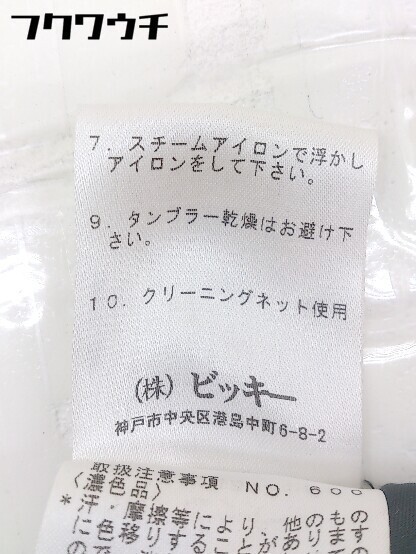 フクワウチ
7. スチームアイロンで浮かし
アイロンをして下さい。
9. タンブラー乾燥はお避け下
さい。
10. クリーニングネット使用
(株) ビッキー
神戸市中央区港島中町6-8-2
取扱注意事項 NO. 600
〈濃色品〉
*汗・摩擦等により、他のもの
に色移りすることがありますの